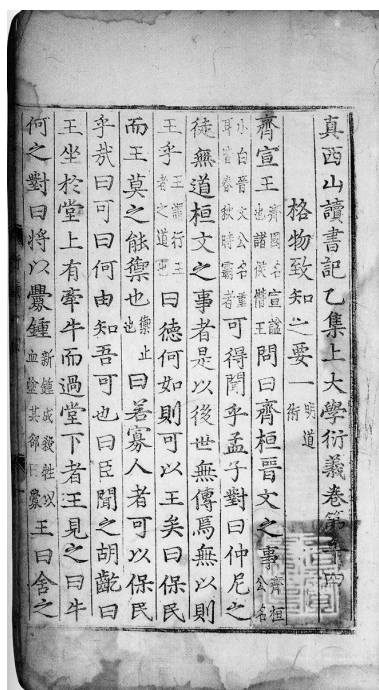 真西山讀書記乙集上大學衍義卷第十四
格物致知之要一 明道術
齊宣王 齊國名宣謚也諸侯僭王 問曰齊桓晉文之事 齊桓公名
小白晉文公名重耳皆春秋時霸者 可得聞乎孟子對曰仲尼之
徒無道桓文之事者是以後世無傳焉無以則
王乎 王謂行王者之道也 曰德何如則可以王矣曰保民
而王莫之能禦也 禦止也 曰若寡人者可以保民
乎哉曰可曰何由知吾可也曰臣聞之胡齕曰
王坐於堂上有牽牛而過堂下者王見之曰牛
何之對曰將以釁鍾 新鍾成殺牲以血塗其郄曰釁 王曰舍之